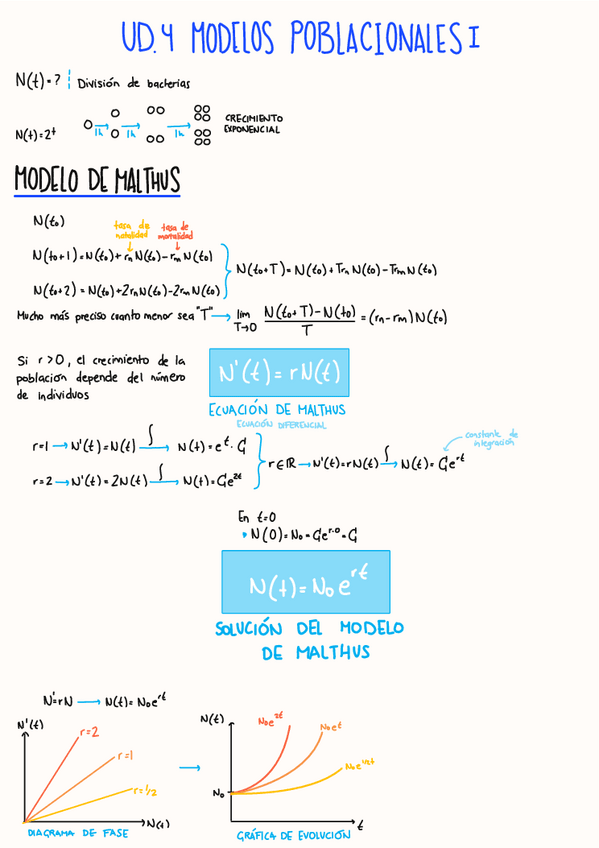 UD.4 MODELOS POBLACIONALES I
N(t)=? División de bacterias
N(t)=2^t
1h 1h 1h
CRECIMIENTO
EXPONENCIAL
MODELO DE MALTHUS
N(t₀)
tasa de
natalidad
tasa de
mortalidad
N(t₀+1)=N(t₀)+rₙN(t₀)-rₘN(t₀)
N(t₀+2)=N(t₀)+2rₙN(t₀)-2rₘN(t₀)
N(t₀+T)=N(t₀)+TrₙN(t₀)-TrₘN(t₀)
Mucho más preciso cuanto menor sea "T" → lim T→0 (N(t₀+T)-N(t₀))/T = (rₙ-rₘ)N(t₀)
Si r>0, el crecimiento de la
población depende del número
de individuos
N'(t)=rN(t)
ECUACIÓN DE MALTHUS
ECUACIÓN DIFERENCIAL
r=1 → N'(t)=N(t) ∫→ N(t)=e^t·C
r=2 → N'(t)=2N(t) ∫→ N(t)=Ce^2t
r∈ℝ → N'(t)=rN(t) ∫→ N(t)=Ce^rt
constante de
integración
En t=0
• N(0)=N₀=Ce^r·0=C
N(t)=N₀e^rt
SOLUCIÓN DEL MODELO
DE MALTHUS
N'=rN → N(t)=N₀e^rt
N'(t)
r=2
r=1
r=1/2
N(t)
DIAGRAMA DE FASE
N(t)
N₀e^2t
N₀e^t
N₀e^1/2t
N₀
t
GRÁFICA DE EVOLUCIÓN